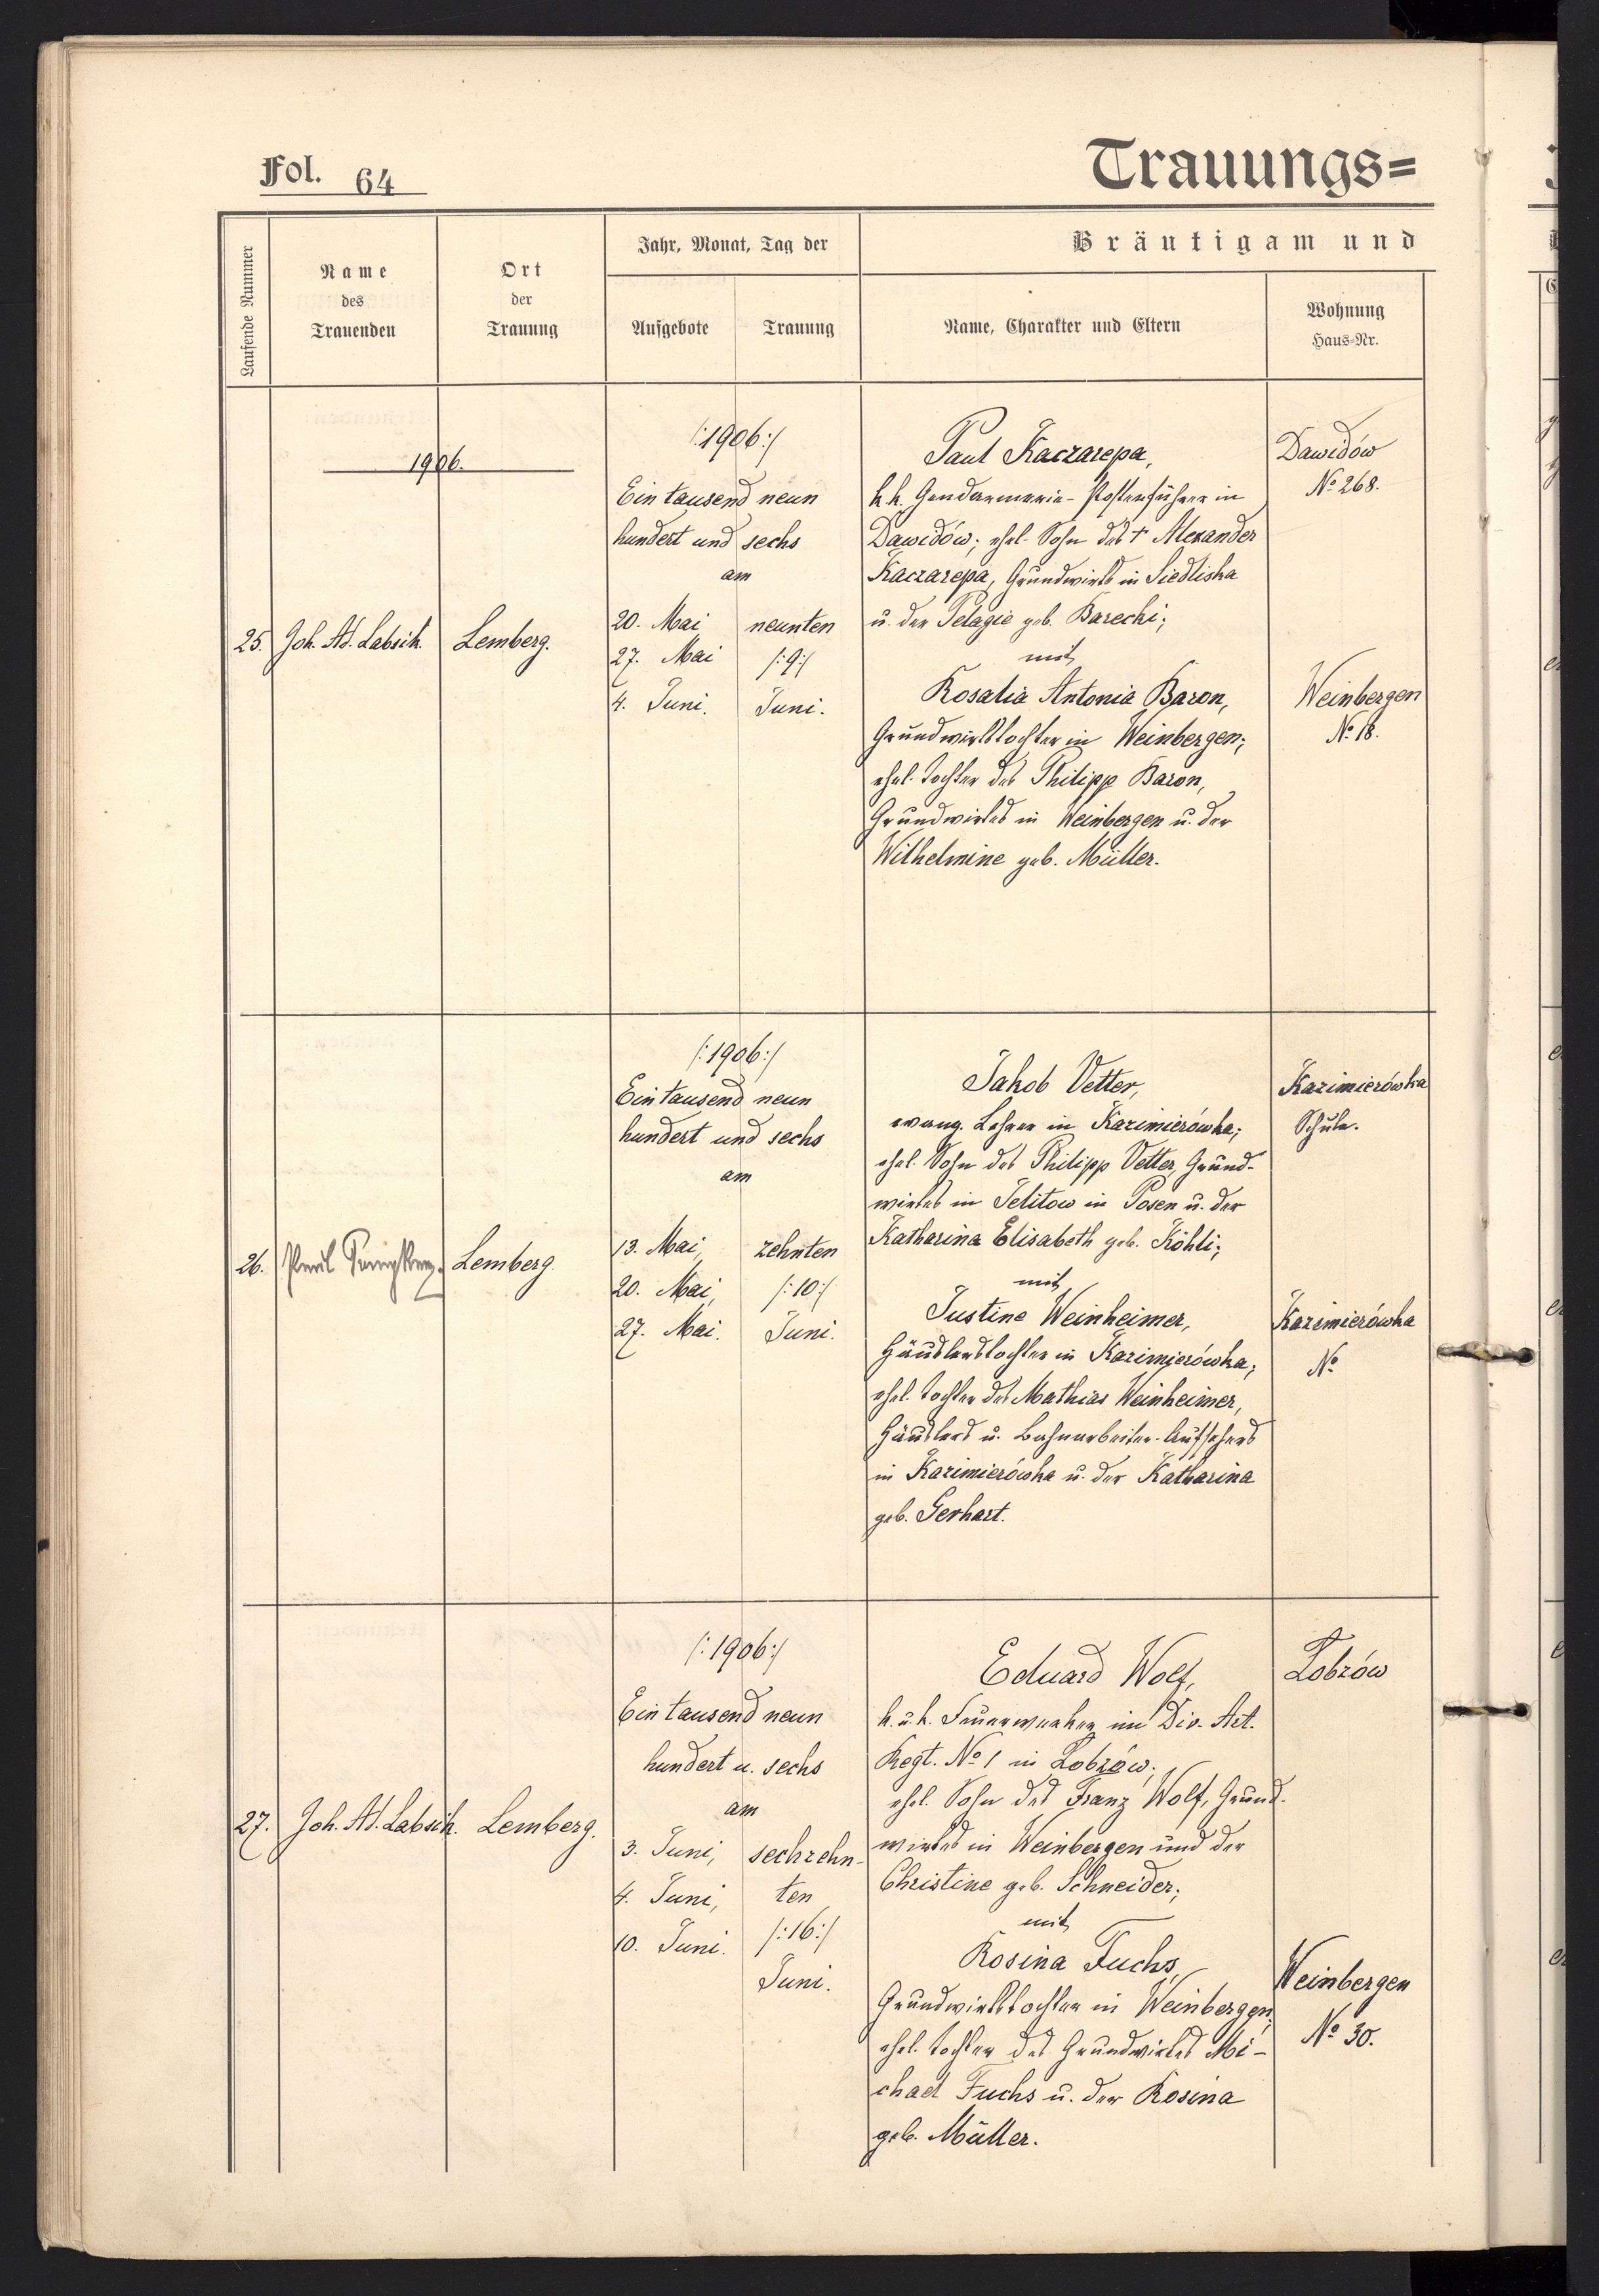 Fol. 64
Trauungs=
Laufende Nummer
Name
des
Trauenden
Ort
der
Trauung
Jahr, Monat, Tag der
Aufgebote
Trauung
Bräutigam und
Name, Charakter und Eltern
Wohnung
Haus=Nr.
1906.
25.
Joh. Ad. Labsik.
Lemberg.
/:1906:/
Ein tausend neun
hundert und sechs
am
20. Mai
27. Mai
4. Juni.
neunten
/:9:/
Juni.
Paul Kaczarepa,
k. k. Gendarmerie-Postenführer in
Dawidów; ehel. Sohn des † Alexander
Kaczarepa, Grundwirts in Siedliska
u. der Pelagie geb. Barecki;
mit
Rosalia Antonia Baron,
Grundwirtstochter in Weinbergen;
ehel. Tochter des Philipp Baron,
Grundwirtes in Weinbergen u. der
Wilhelmine geb. Müller.
Dawidów
No 268.
Weinbergen
No 18.
26.
Paul
Lemberg.
/:1906:/
Ein tausend neun
hundert und sechs
am
13. Mai,
20. Mai,
27. Mai.
zehnten
/:10:/
Juni.
Jakob Vetter,
evang. Lehrer in Kazimierówka;
ehel. Sohn des Philipp Vetter, Grund-
wirtes in Telitow in Posen u. der
Katharina Elisabeth geb. Köhli;
mit
Justine Weinheimer,
Häuslerstochter in Kazimierówka;
ehel. Tochter des Mathias Weinheimer,
Häuslers u. Bahnarbeiter-Aufsehers
in Kazimierówka u. der Katharina
geb. Gerhart.
Kazimierówka
Schule.
Kazimierówka
No
27.
Joh. Ad. Labsik.
Lemberg.
/:1906:/
Ein tausend neun
hundert u. sechs
am
3. Juni,
4. Juni,
10. Juni.
sechzehn-
ten
/:16:/
Juni.
Eduard Wolf,
k. u. k. Feuerwerker im Div. Art.
Regt. No 1 in Łobzów;
ehel. Sohn des Franz Wolf, Grund-
wirtes in Weinbergen und der
Christine geb. Schneider;
mit
Rosina Fuchs,
Grundwirtstochter in Weinbergen;
ehel. Tochter des Grundwirtes Mi-
chael Fuchs u. der Rosina
geb. Müller.
Łobzów
Weinbergen
No 30.